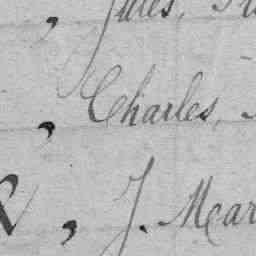 , Jules,
, Charles,
, J. Mar